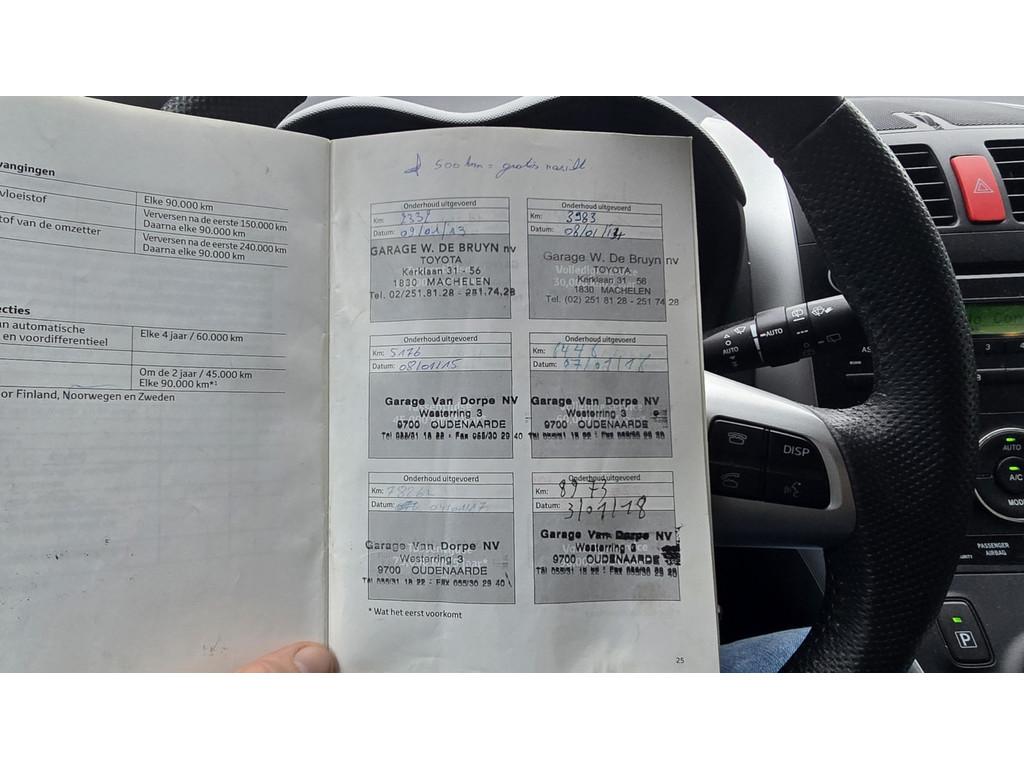 vangingen
vloeistof
Elke 90.000 km
tof van de omzetter
Verversen na de eerste 150.000 km
Daarna elke 90.000 km
Verversen na de eerste 240.000 km
Daarna elke 90.000 km
ecties
an automatische
en voordifferentieel
Elke 4 jaar / 60.000 km
Om de 2 jaar / 45.000 km
Elke 90.000 km*¹
or Finland, Noorwegen en Zweden
500 km = gratis
Onderhoud uitgevoerd
Km:
Datum: 09/01/13
GARAGE W. DE BRUYN nv
TOYOTA
Kerklaan 31 - 56
1830 MACHELEN
Tel. 02/251.81.28 - 251.74.28
Onderhoud uitgevoerd
Km: 3983
Datum: 08/01/14
Garage W. De Bruyn nv
TOYOTA
Kerklaan 31 - 56
1830 MACHELEN
Tel. (02) 251 81 28 - 251 74 28
Onderhoud uitgevoerd
Km: 5176
Datum: 08/01/15
Garage Van Dorpe NV
Westerring 3
9700 OUDENAARDE
Tel 055/31 18 22 - Fax 055/30 29 40
Onderhoud uitgevoerd
Km:
Datum:
Garage Van Dorpe NV
Westerring 3
9700 OUDENAARDE
Tel 055/31 18 22 - Fax 055/30 29 40
Onderhoud uitgevoerd
Km:
Datum:
Garage Van Dorpe NV
Westerring 3
9700 OUDENAARDE
Tel 055/31 18 22 - Fax 055/30 29 40
Onderhoud uitgevoerd
Km: 8973
Datum: 3/01/18
Garage Van Dorpe NV
Westerring 3
9700 OUDENAARDE
Tel 055/31 18 22 - Fax 055/30 29 40
* Wat het eerst voorkomt
25
AUTO
AUTO
DISP
AS
3 4
AUTO
A/C
MODE
PASSENGER
AIRBAG
P